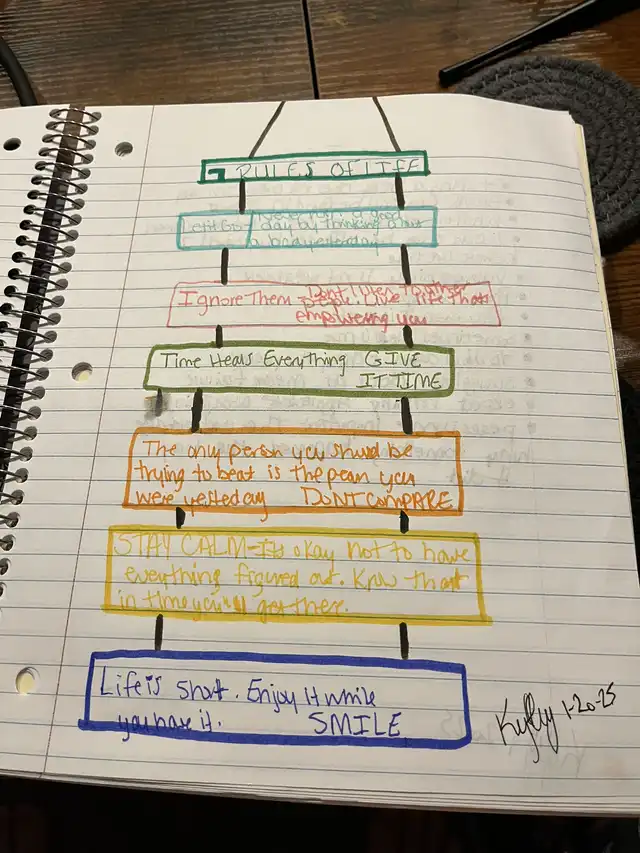 RULES OF LIFE
Let it Go / Never ruin a good
day by thinking about
a bad yesterday
Ignore Them Dont listen to other
people. Live life thats
empowering you
Time Heals Everything GIVE
IT TIME
The only person you should be
trying to beat is the peron you
were yesterday DONT COMPARE
STAY CALM-Its okay not to have
everything figured out. Know that
in time you'll get there.
Life is short. Enjoy it while
you have it. SMILE
1-20-25